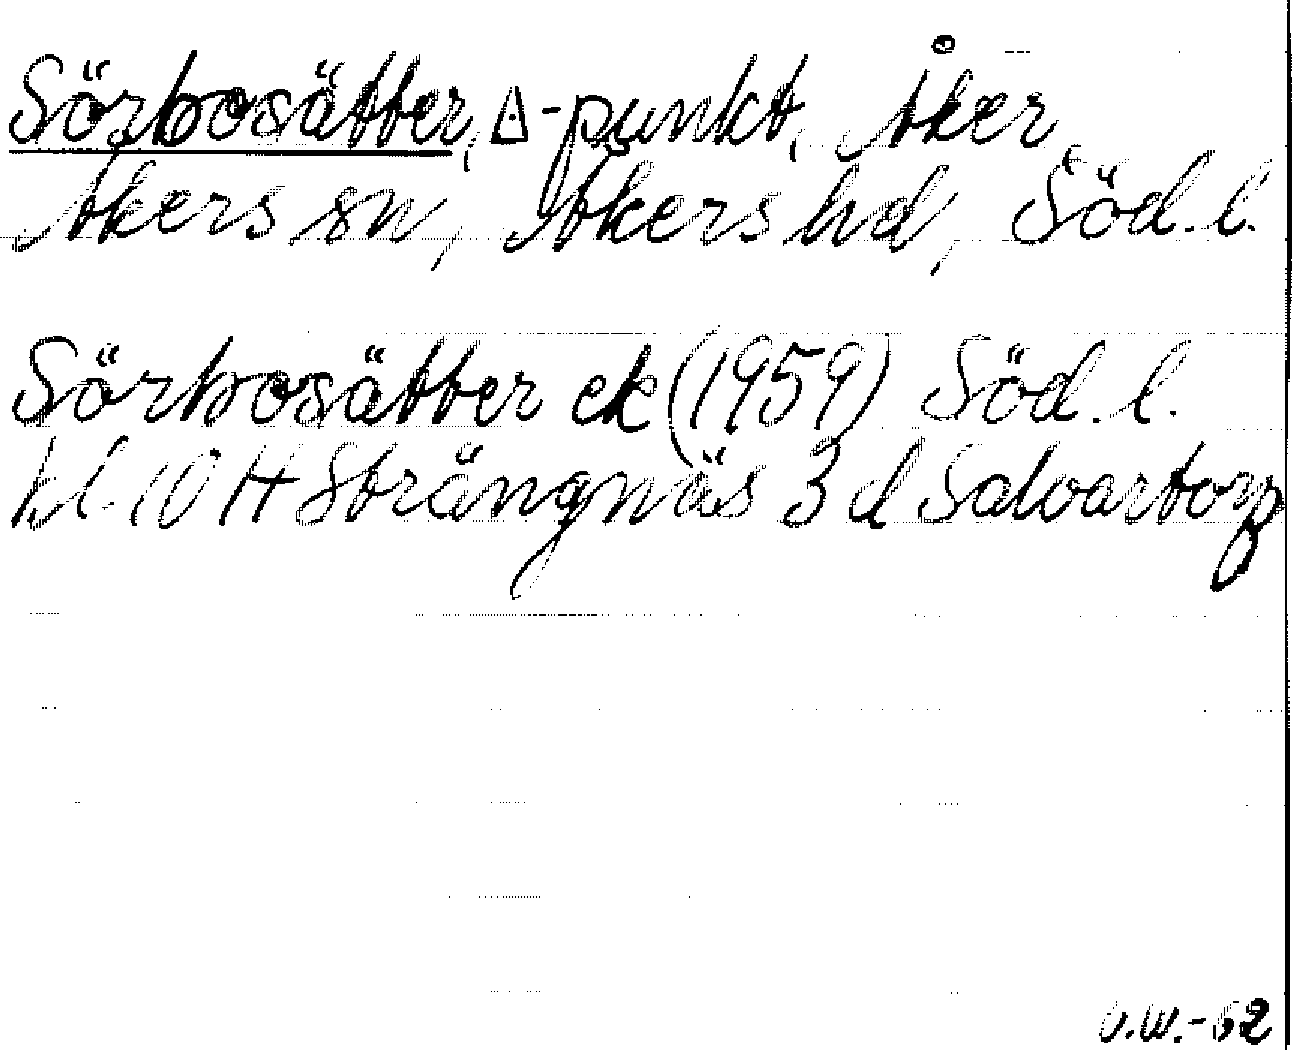 Sörbosätter, △-punkt, Åker
Åkers sn, Åkers hd, Söd. l.
Sörbosätter ek (1959) Söd. l.
bl. 10 H Strängnäs 3 d Salvartorp
O.W.-62